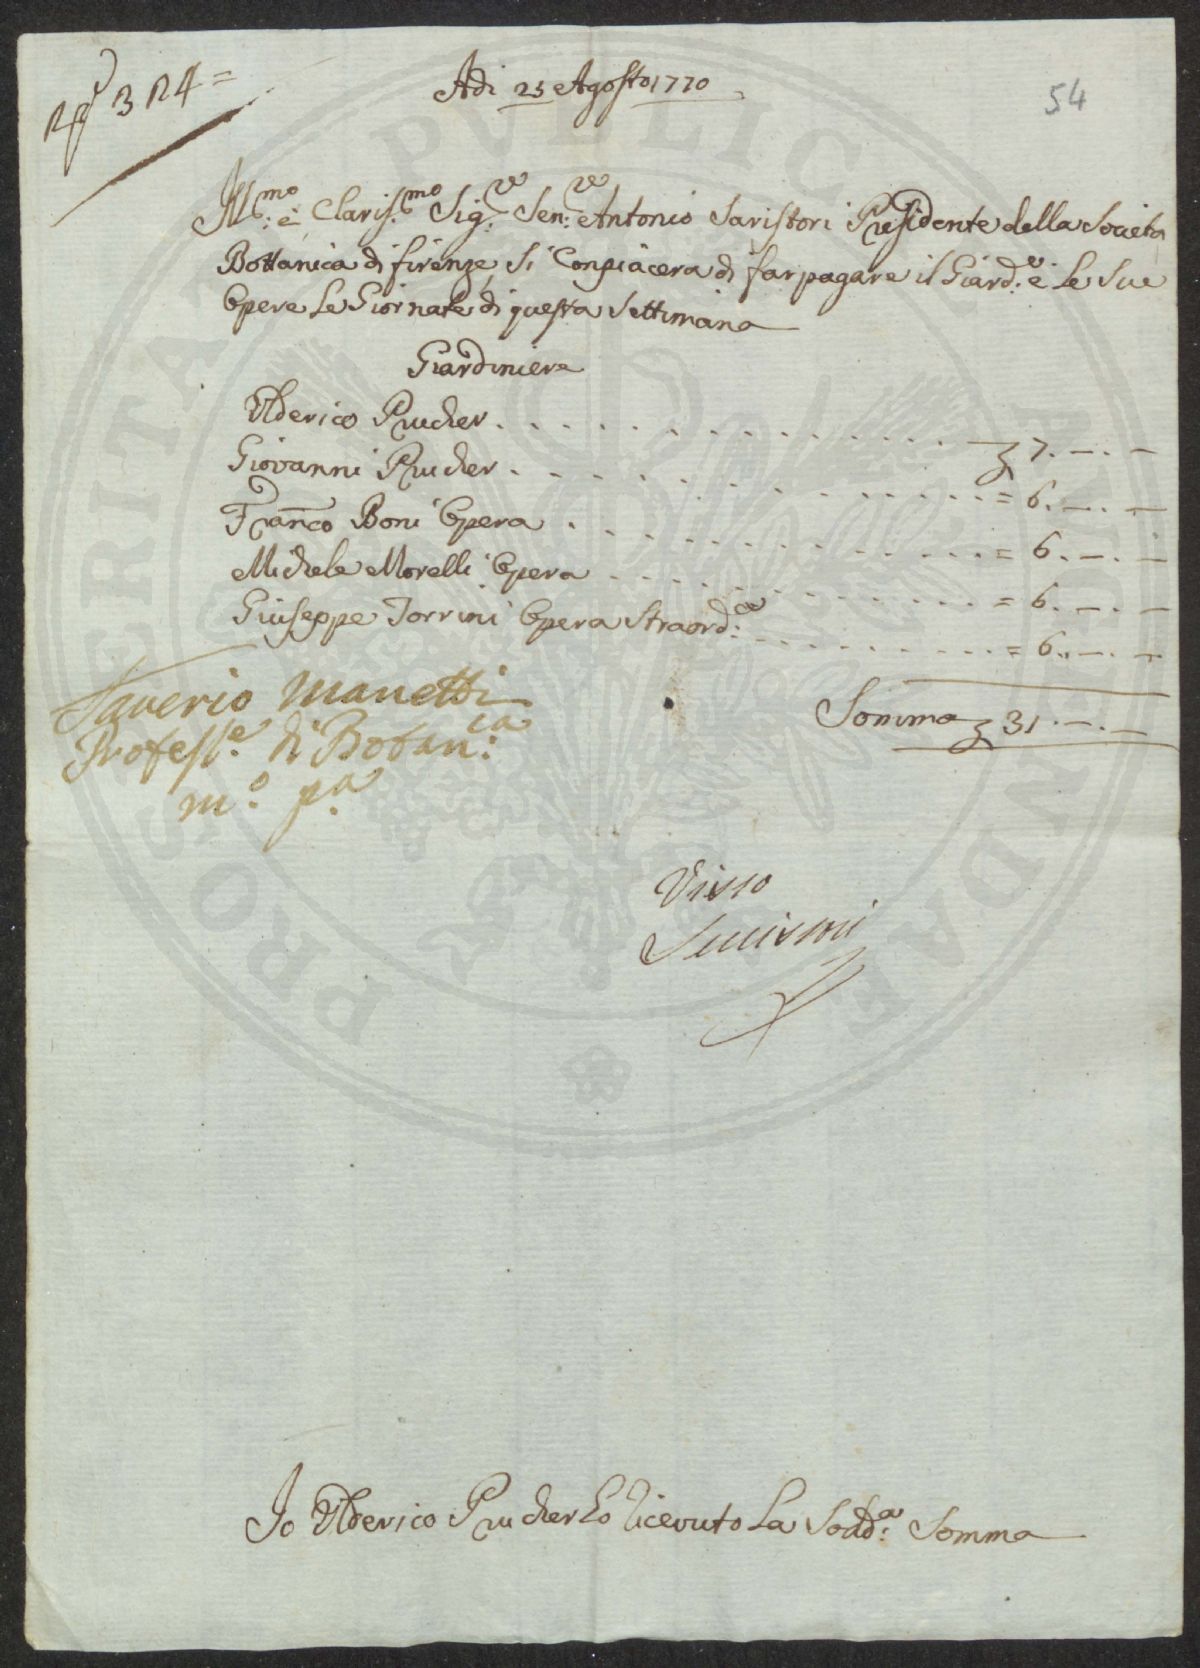 Nº 324=
Adi 25 Agosto 1770
54
Ill:mo è Claris:mo Sig:re Sen:re Antonio Saristori Presidente della Societa
Bottanica di firenze Si Conpiacera di far pagare il Giard:e è Le Sue
Opere Le Giornate di questa Settimana
Giardiniere
Ulderico Prucher . . . . . . . . . . . . . . . . 7.—.—
Giovanni Prucher . . . . . . . . . . . . . . . . = 6.—.—
Franco Boni Opera . . . . . . . . . . . . . . . = 6.—.—
Michele Morelli Opera . . . . . . . . . . . . . . = 6.—.—
Giuseppe Torrini Opera Straord:a . . . . . . . . . . = 6.—.—
Somma 31.—.—
Saverio Manetti
Profess:e di Botan:ca
m:o p:a
Visto
PROSPERITATI PVBLICAE
Io Ulderico Prucher ho ricevuto La Sodd:a Somma